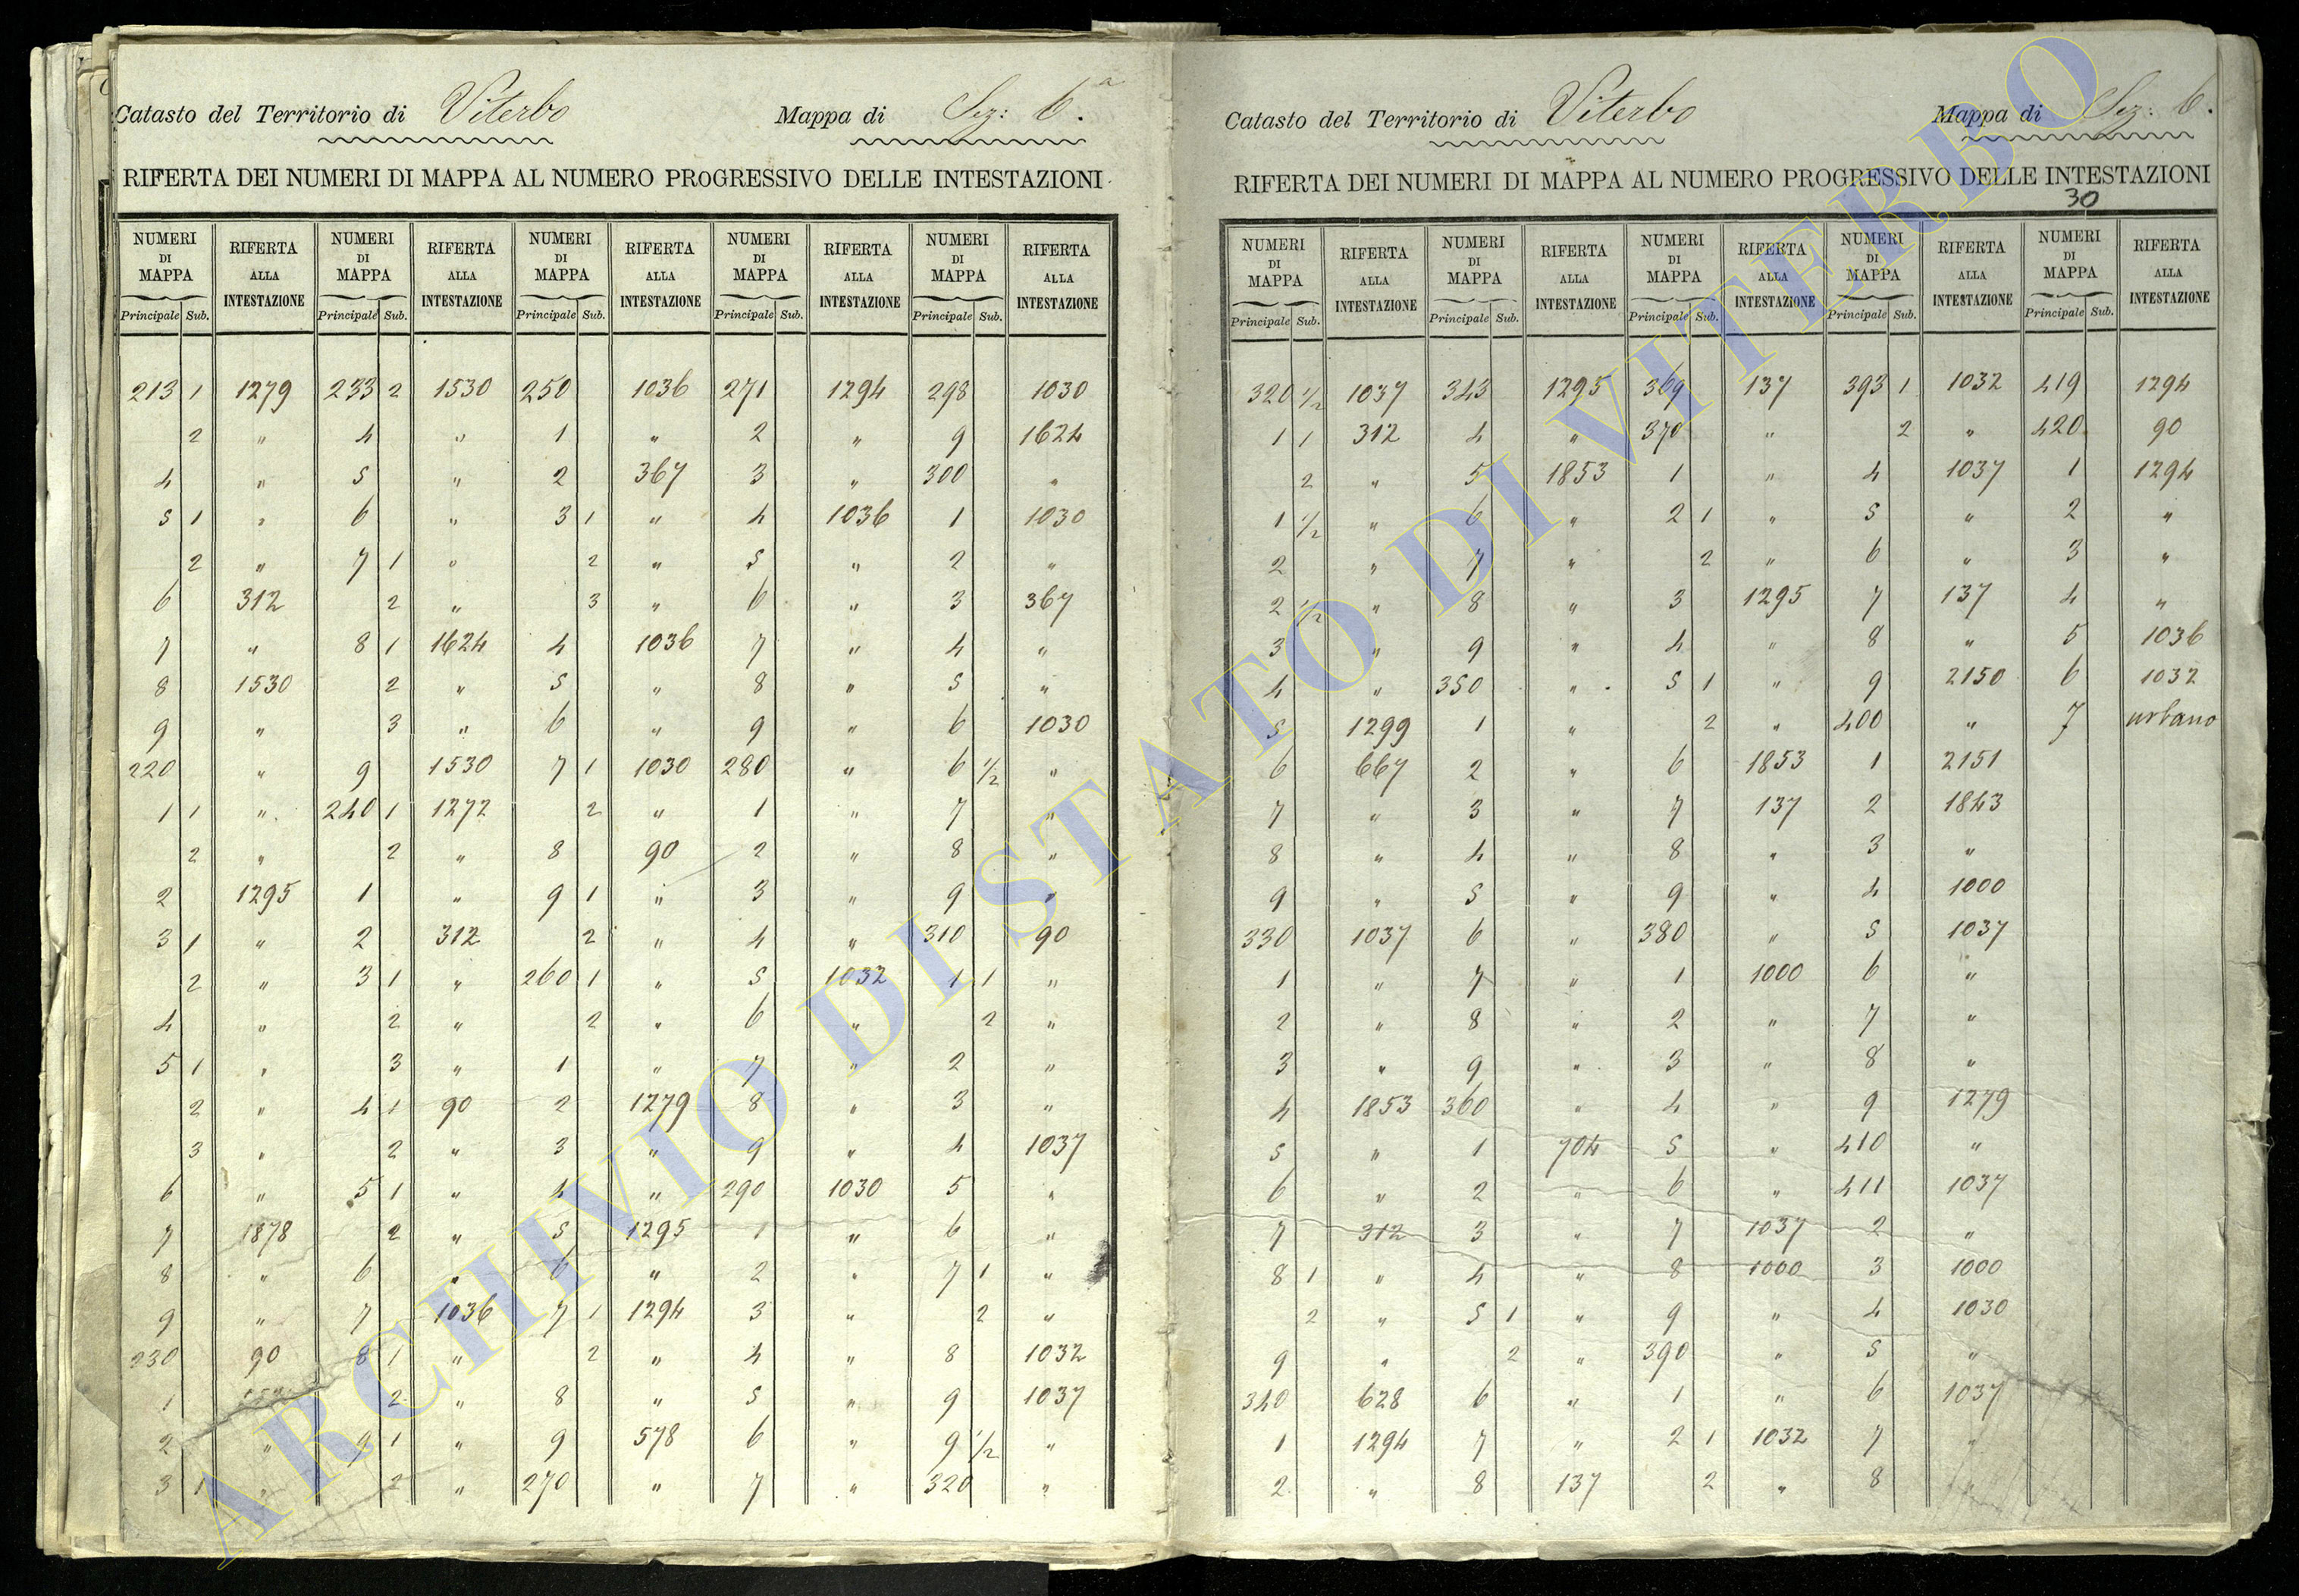 Catasto del Territorio di Viterbo Mappa di Sez: 6.a
RIFERTA DEI NUMERI DI MAPPA AL NUMERO PROGRESSIVO DELLE INTESTAZIONI
NUMERI DI MAPPA RIFERTA ALLA INTESTAZIONE NUMERI DI MAPPA RIFERTA ALLA INTESTAZIONE NUMERI DI MAPPA RIFERTA ALLA INTESTAZIONE NUMERI DI MAPPA RIFERTA ALLA INTESTAZIONE NUMERI DI MAPPA RIFERTA ALLA INTESTAZIONE
Principale Sub. Principale Sub. Principale Sub. Principale Sub. Principale Sub.
213 1 1279 233 2 1530 250 1036 271 1294 298 1030
2 " 4 " 1 " 2 " 9 1624
4 " 5 " 2 367 3 " 300 "
5 1 " 6 " 3 1 " 4 1036 1 1030
2 " 7 1 " 2 " 5 " 2 "
6 312 2 " 3 " 6 " 3 367
7 " 8 1 1624 4 1036 7 " 4 "
8 1530 2 " 5 " 8 " 5 "
9 " 3 " 6 " 9 " 6 1030
220 " 9 1530 7 1 1030 280 " 6 1/2 "
1 1 " 240 1 1272 2 " 1 " 7 "
2 " 2 " 8 90 2 " 8 "
2 1295 1 " 9 1 " 3 " 9 "
3 1 " 2 312 2 " 4 " 310 90
2 " 3 1 " 260 1 " 5 1032 1 1 "
4 " 2 " 2 " 6 " 2 "
5 1 " 3 " 1 " 7 " 2 "
2 " 4 1 90 2 1279 8 " 3 "
3 " 2 " 3 " 9 " 4 1037
6 " 5 1 " 4 " 290 1030 5 "
7 1878 2 " 5 1295 1 " 6 "
8 " 6 " 6 " 2 " 7 1 "
9 " 7 1036 7 1 1294 3 " 2 "
230 90 8 1 " 2 " 4 " 8 1032
1 2 " 8 " 5 " 9 1037
2 " 9 1 " 9 578 6 " 9 1/2 "
3 1 " 2 " 270 " 7 " 320 "
Catasto del Territorio di Viterbo Mappa di Sez: 6.
RIFERTA DEI NUMERI DI MAPPA AL NUMERO PROGRESSIVO DELLE INTESTAZIONI
30
NUMERI DI MAPPA RIFERTA ALLA INTESTAZIONE NUMERI DI MAPPA RIFERTA ALLA INTESTAZIONE NUMERI DI MAPPA RIFERTA ALLA INTESTAZIONE NUMERI DI MAPPA RIFERTA ALLA INTESTAZIONE NUMERI DI MAPPA RIFERTA ALLA INTESTAZIONE
Principale Sub. Principale Sub. Principale Sub. Principale Sub. Principale Sub.
320 1/2 1037 343 1295 369 137 393 1 1032 419 1294
1 1 312 4 " 370 " 2 " 420 90
2 " 5 1853 1 " 4 1037 1 1294
1 1/2 " 6 " 2 1 " 5 " 2 "
2 " 7 " 2 " 6 " 3 "
2 1/2 " 8 " 3 1295 7 137 4 "
3 " 9 " 4 " 8 " 5 1036
4 " 350 " 5 1 " 9 2150 6 1032
5 1299 1 " 2 " 400 " 7 urbano
6 667 2 " 6 1853 1 2151
7 " 3 " 7 137 2 1843
8 " 4 " 8 " 3 "
9 " 5 " 9 " 4 1000
330 1037 6 " 380 " 5 1037
1 " 7 " 1 1000 6 "
2 " 8 " 2 " 7 "
3 " 9 " 3 " 8 "
4 1853 360 " 4 " 9 1279
5 " 1 704 5 " 410 "
6 " 2 " 6 " 411 1037
7 312 3 " 7 1037 2 "
8 1 " 4 " 8 1000 3 1000
2 " 5 1 " 9 " 4 1030
9 " 2 " 390 " 5 "
340 628 6 " 1 " 6 1037
1 1294 7 " 2 1 1032 7 "
2 " 8 137 2 " 8 "
ARCHIVIO DI STATO DI VITERBO